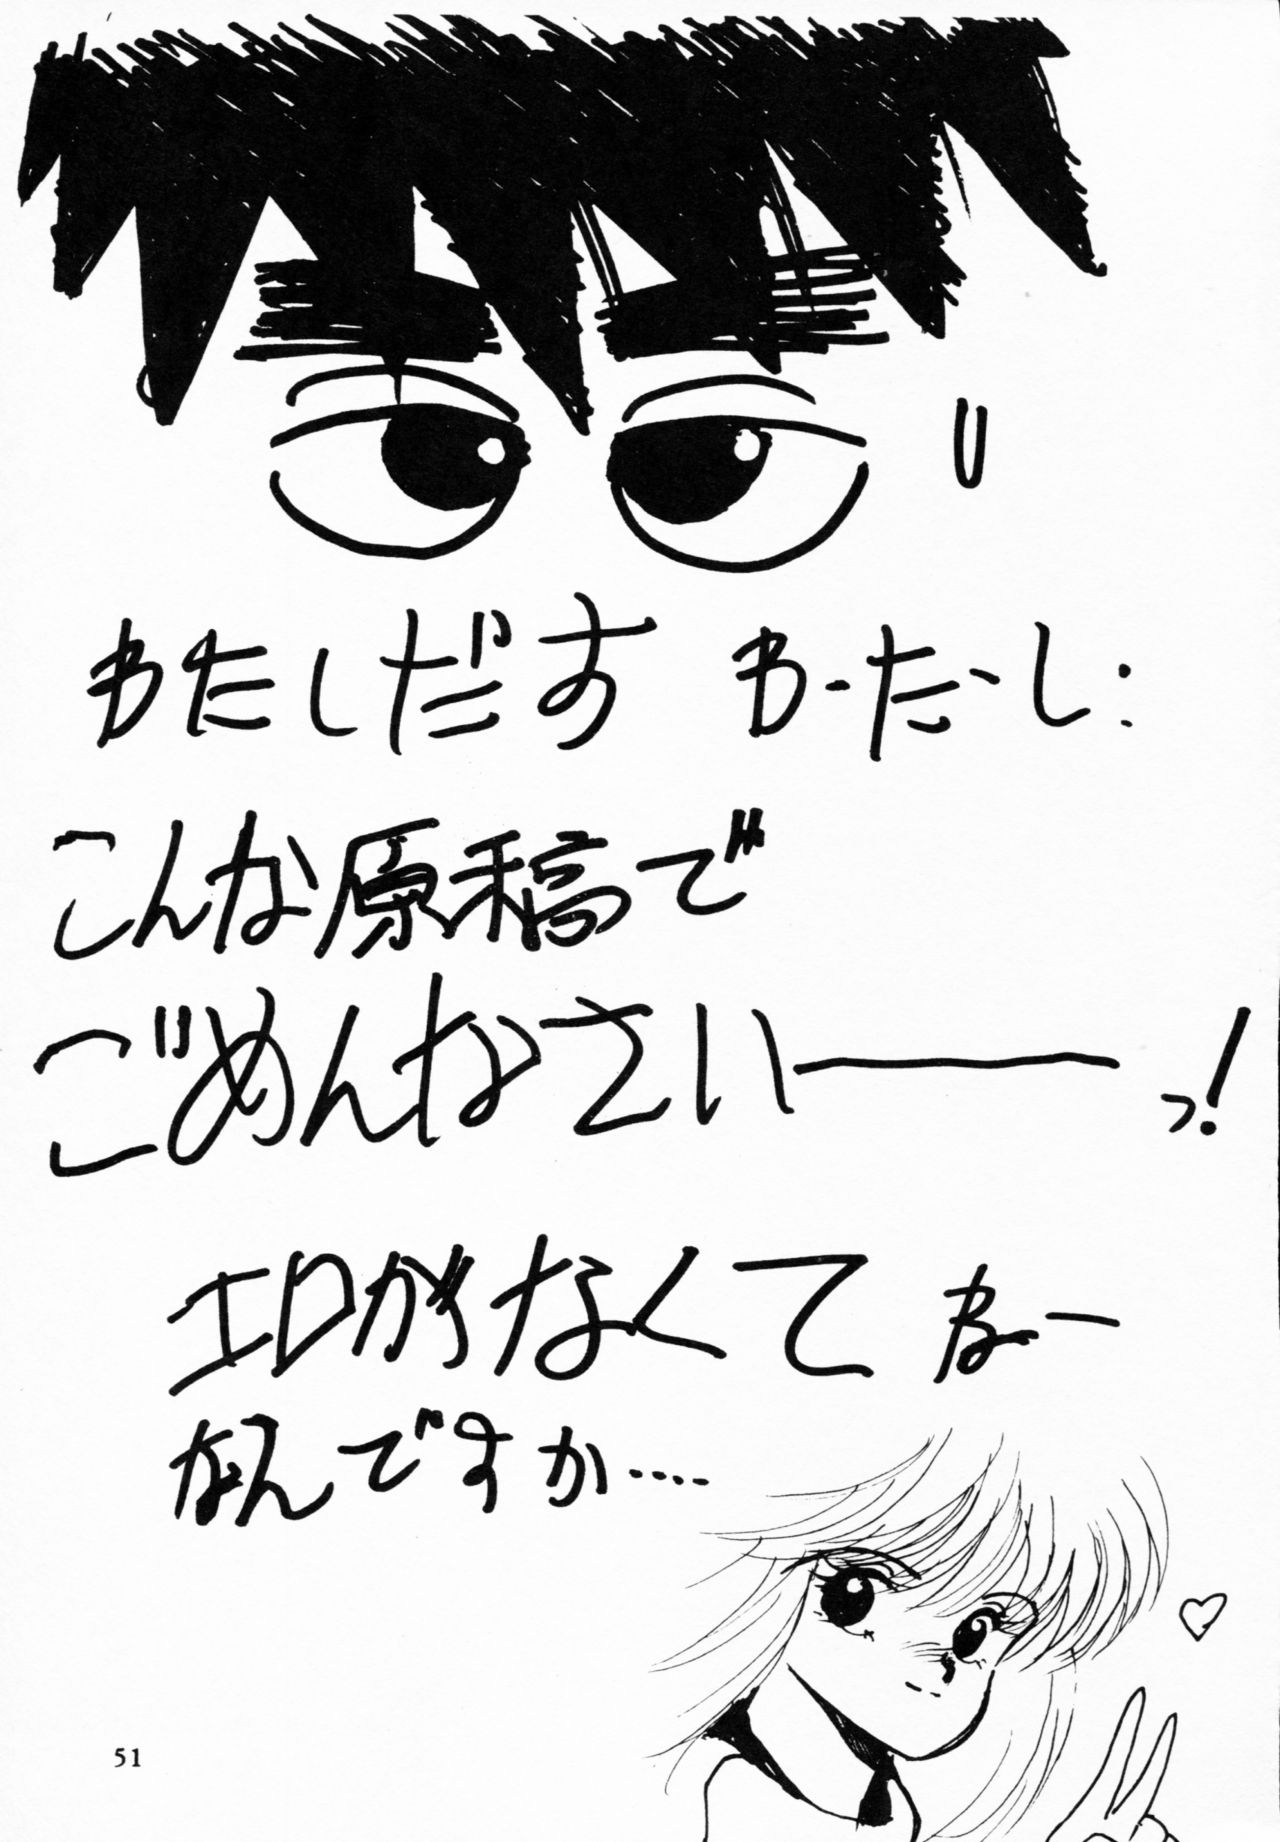 わたしだす わ・た・し:
こんな原稿で
ごめんなさい――っ!
エロがなくて なー
なんですか‥‥
51